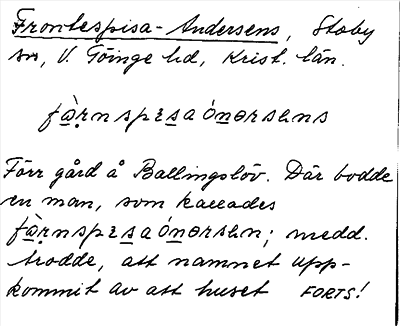 Frontespisa-Andersens, Stoby
sn, V. Göinge hd, Krist. län.
fàrnspɪsaónərsəns
Förr gård å Ballingslöv. Där bodde
en man, som kallades
fàrnspɪsaónərsən; medd.
trodde, att namnet upp-
kommit av att huset FORTS!